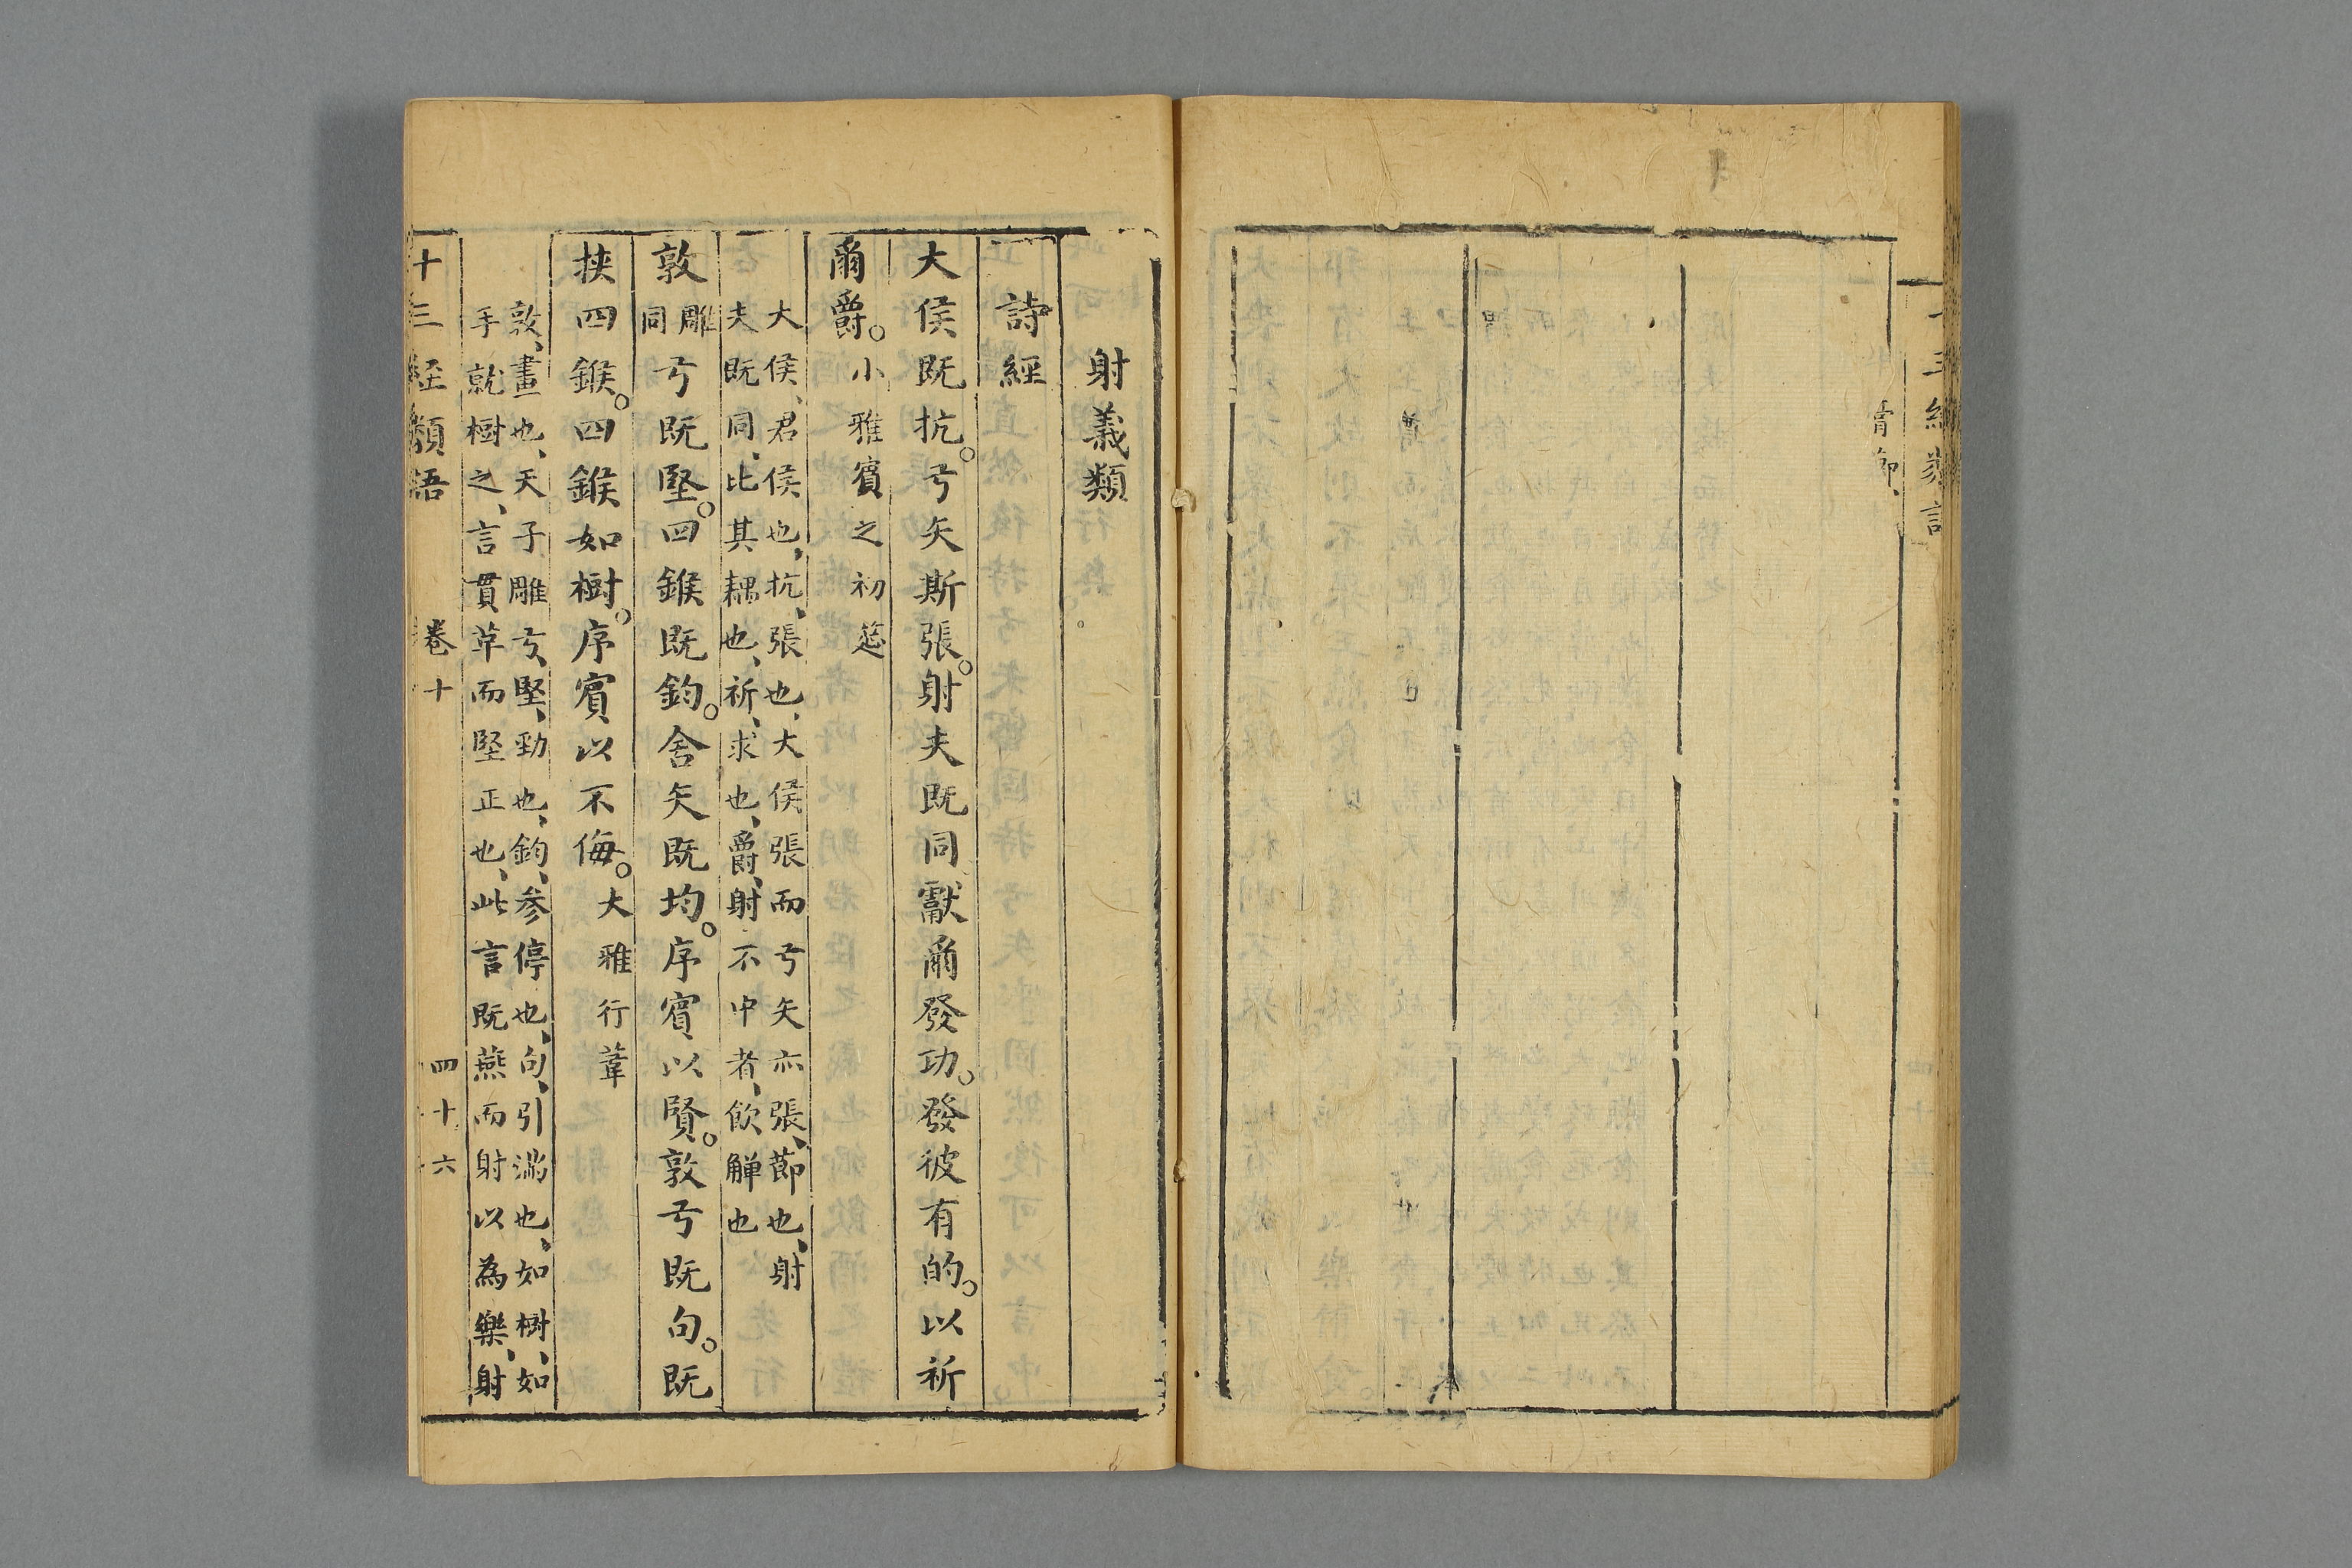 射義類
詩經
大侯既抗。弓矢斯張。射夫既同獻爾發功。發彼有的。以祈
爾爵。小雅賓之初筵
大侯、君侯也、抗、張也、大侯張而弓矢亦張、節也、射
夫既同、比其耦也、祈、求也、爵、射不中者、飲觶也
敦雕同弓既堅。四鍭既鈞。舍矢既均。序賓以賢。敦弓既句。既
挾四鍭。四鍭如樹。序賓以不侮。大雅行葦
敦、畫也、天子雕弓、堅、勁也、鈞、参停也、句、引滿也、如樹、如
手就樹之、言貫革而堅正也、此言既燕而射以為樂、射
十三経類語 卷十 四十六